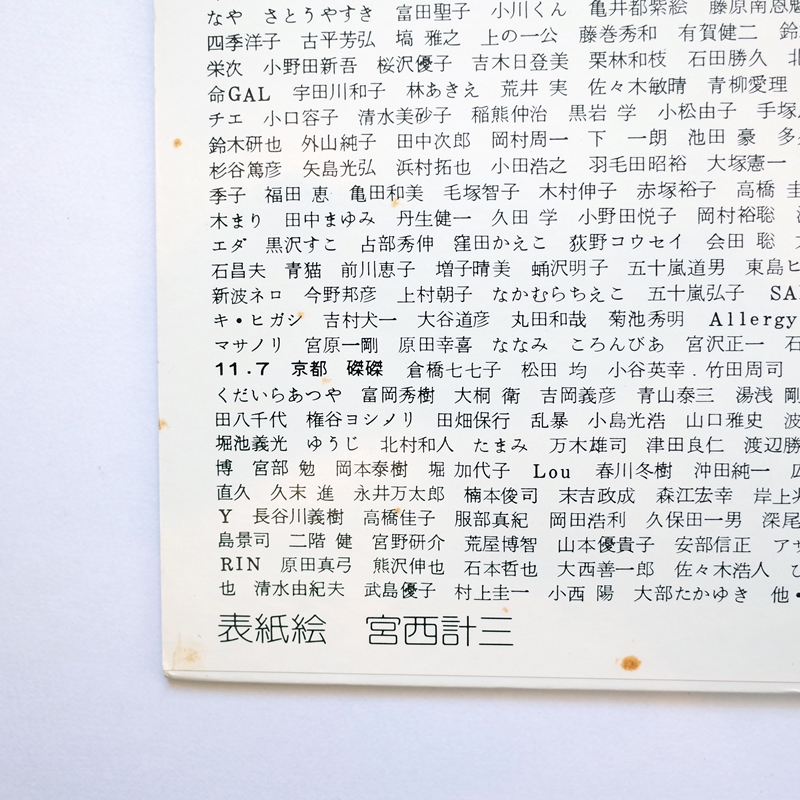 なや さとうやすき 富田聖子 小川くん 亀井都紫絵 藤原南恩
四季洋子 古平芳弘 塙 雅之 上の一公 藤巻秀和 有賀健二
栄次 小野田新吾 桜沢優子 吉木日登美 栗林和枝 石田勝久 北
命GAL 宇田川和子 林あきえ 荒井 実 佐々木敏晴 青柳愛理
チエ 小口容子 清水美砂子 稲熊仲治 黒岩 学 小松由子 手塚
鈴木研也 外山純子 田中次郎 岡村周一 下 一朗 池田 豪 多
杉谷篤彦 矢島光弘 浜村拓也 小田浩之 羽毛田昭裕 大塚憲一
季子 福田 恵 亀田和美 毛塚智子 木村伸子 赤塚裕子 高橋 圭
木まり 田中まゆみ 丹生健一 久田 学 小野田悦子 岡村裕聡
エダ 黒沢すこ 占部秀伸 窪田かえこ 荻野コウセイ 会田 聡
石昌夫 青猫 前川恵子 増子晴美 蛹沢明子 五十嵐道男 東島ヒ
新波ネロ 今野邦彦 上村朝子 なかむらちえこ 五十嵐弘子 SA
キ・ヒガシ 吉村犬一 大谷道彦 丸田和哉 菊池秀明 Allergy
マサノリ 宮原一剛 原田幸喜 ななみ ころんびあ 宮沢正一 石
11.7 京都 磔磔 倉橋七七子 松田 均 小谷英幸 . 竹田周司
くだいらあつや 富岡秀樹 大桐 衛 吉岡義彦 青山泰三 湯浅 剛
田八千代 権谷ヨシノリ 田畑保行 乱暴 小島光浩 山口雅史 波
堀池義光 ゆうじ 北村和人 たまみ 万木雄司 津田良仁 渡辺勝
博 宮部 勉 岡本泰樹 堀 加代子 Lou 春川冬樹 沖田純一 広
直久 久末 進 永井万太郎 楠本俊司 末吉政成 森江宏幸 岸上
Y 長谷川義樹 高橋佳子 服部真紀 岡田浩利 久保田一男 深尾
島景司 二階 健 宮野研介 荒屋博智 山本優貴子 安部信正 アサ
RIN 原田真弓 熊沢伸也 石本哲也 大西善一郎 佐々木浩人 ひ
也 清水由紀夫 武島優子 村上圭一 小西 陽 大部たかゆき 他・
表紙絵 宮西計三